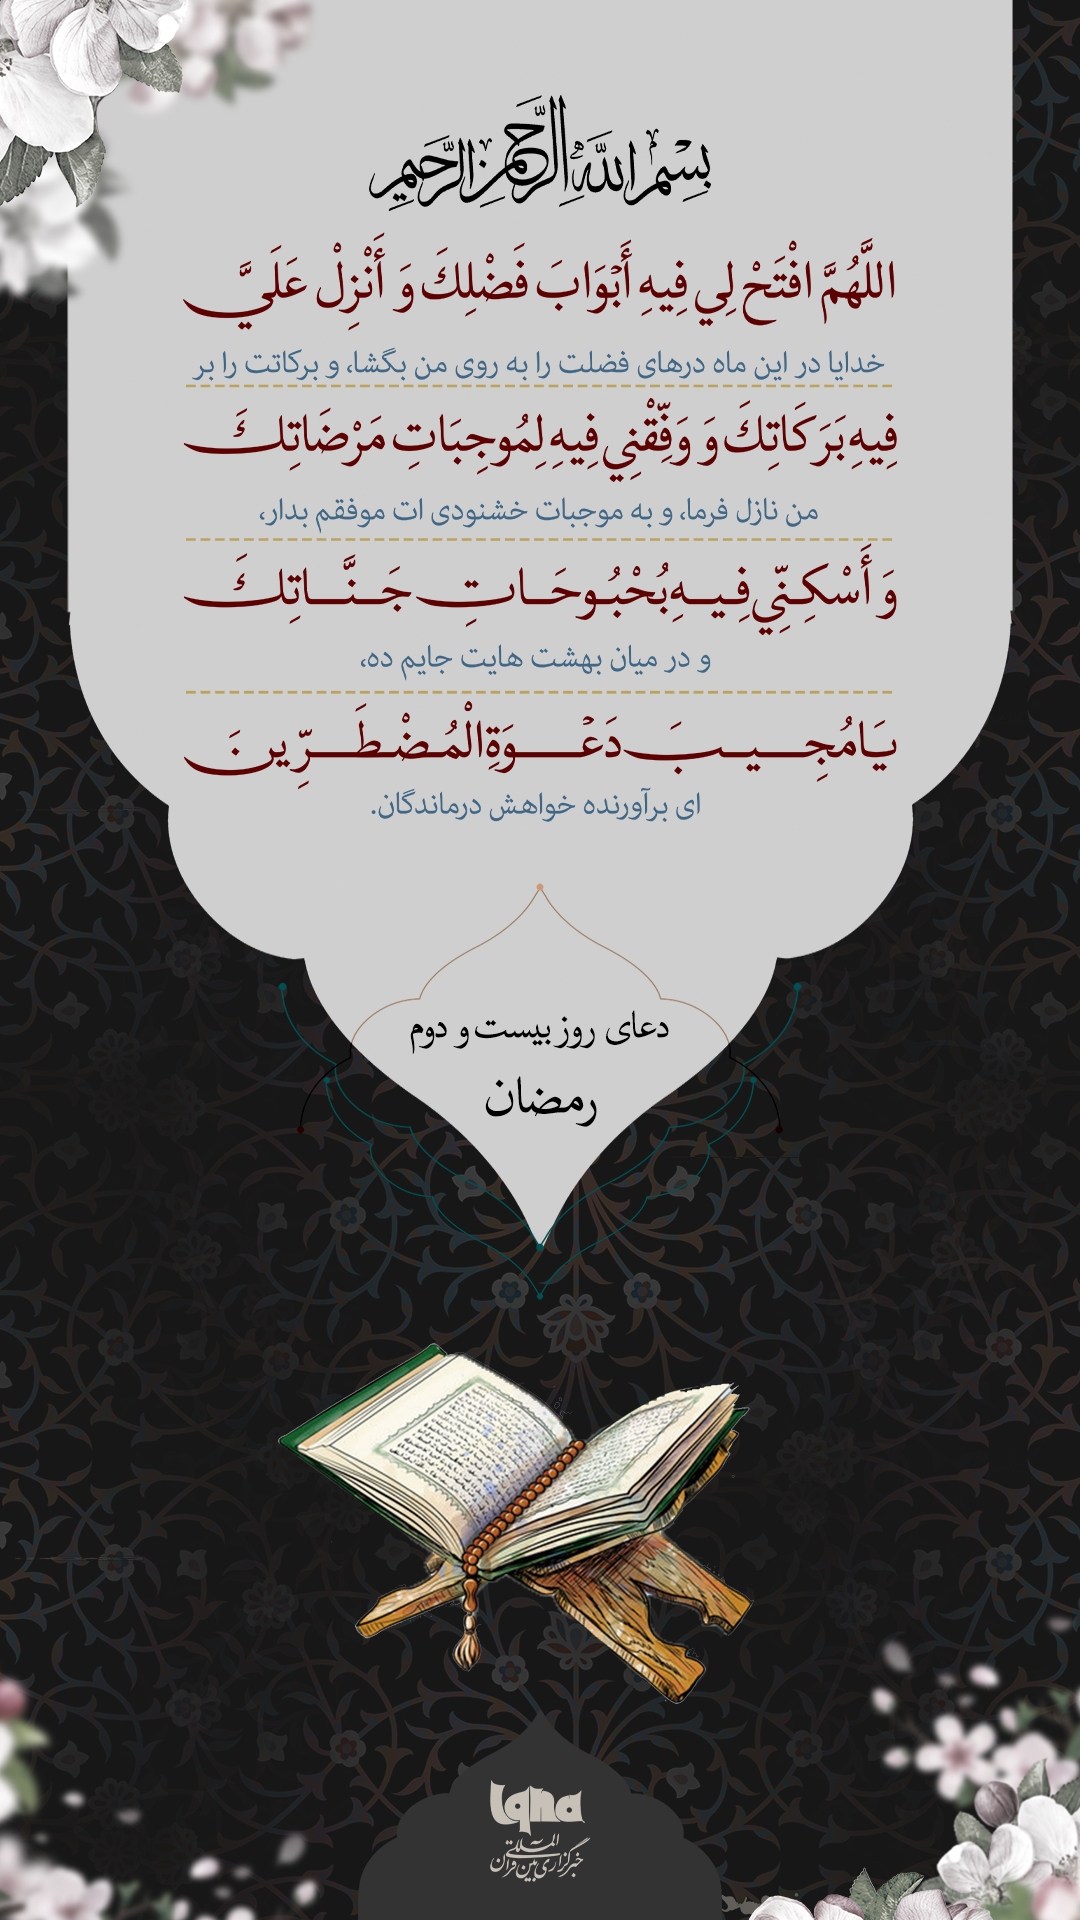 بِسْمِ اللَّهِ الرَّحْمنِ الرَّحِيمِ
اللَّهُمَّ افْتَحْ لِي فِيهِ أَبْوَابَ فَضْلِكَ وَ أَنْزِلْ عَلَيَّ
خدایا در این ماه درهای فضلت را به روی من بگشا، و برکاتت را بر
فِيهِ بَرَكَاتِكَ وَ وَفِّقْنِي فِيهِ لِمُوجِبَاتِ مَرْضَاتِكَ
من نازل فرما، و به موجبات خشنودی ات موفقم بدار،
وَ أَسْكِنِّي فِيهِ بُحْبُوحَاتِ جَنَّاتِكَ
و در میان بهشت هایت جایم ده،
يَا مُجِيبَ دَعْوَةِ الْمُضْطَرِّينَ
ای برآورنده خواهش درماندگان.
دعای روز بیست و دوم
رمضان
Iqna
خبرگزاری بین المللی قرآن